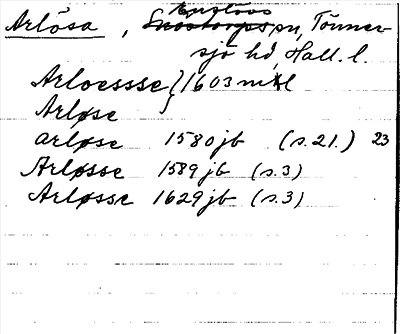 Arlösa, Snöstorps sn, Tönner-
sjö hd, Hall. l.
Arloessse } 1603 mtl
Arløse
arløse 1580 jb (s. 21.) 23
Arløsse 1589 jb (s. 3)
Arløsse 1629 jb (s. 3)